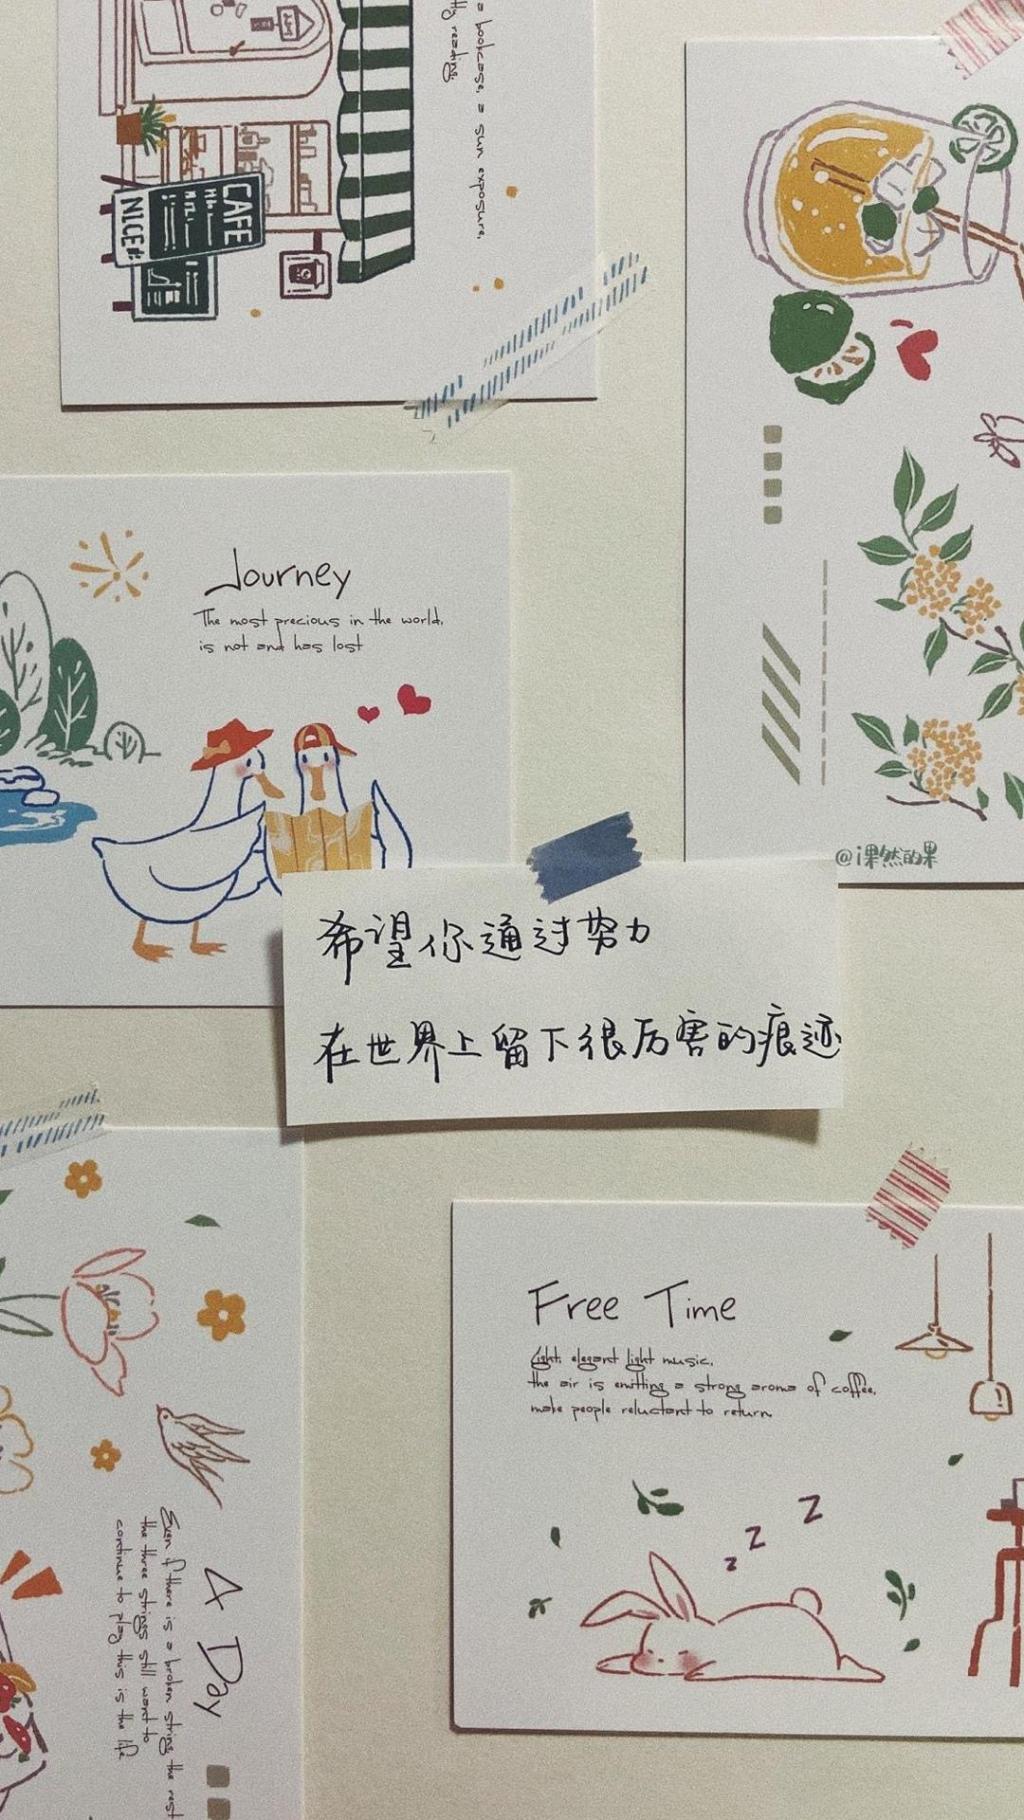 a bookcase, a sun exposure,
reading.
CAFE
NICE
Journey
The most precious in the world,
is not and has lost
@i果然的果
希望你通过努力
在世界上留下很厉害的痕迹
Free Time
Light, elegant light music,
the air is emitting a strong aroma of coffee,
make people reluctant to return.
z z z
A Day
Even if there is a broken string the rest
the three strings still want to
continue to play this is the life